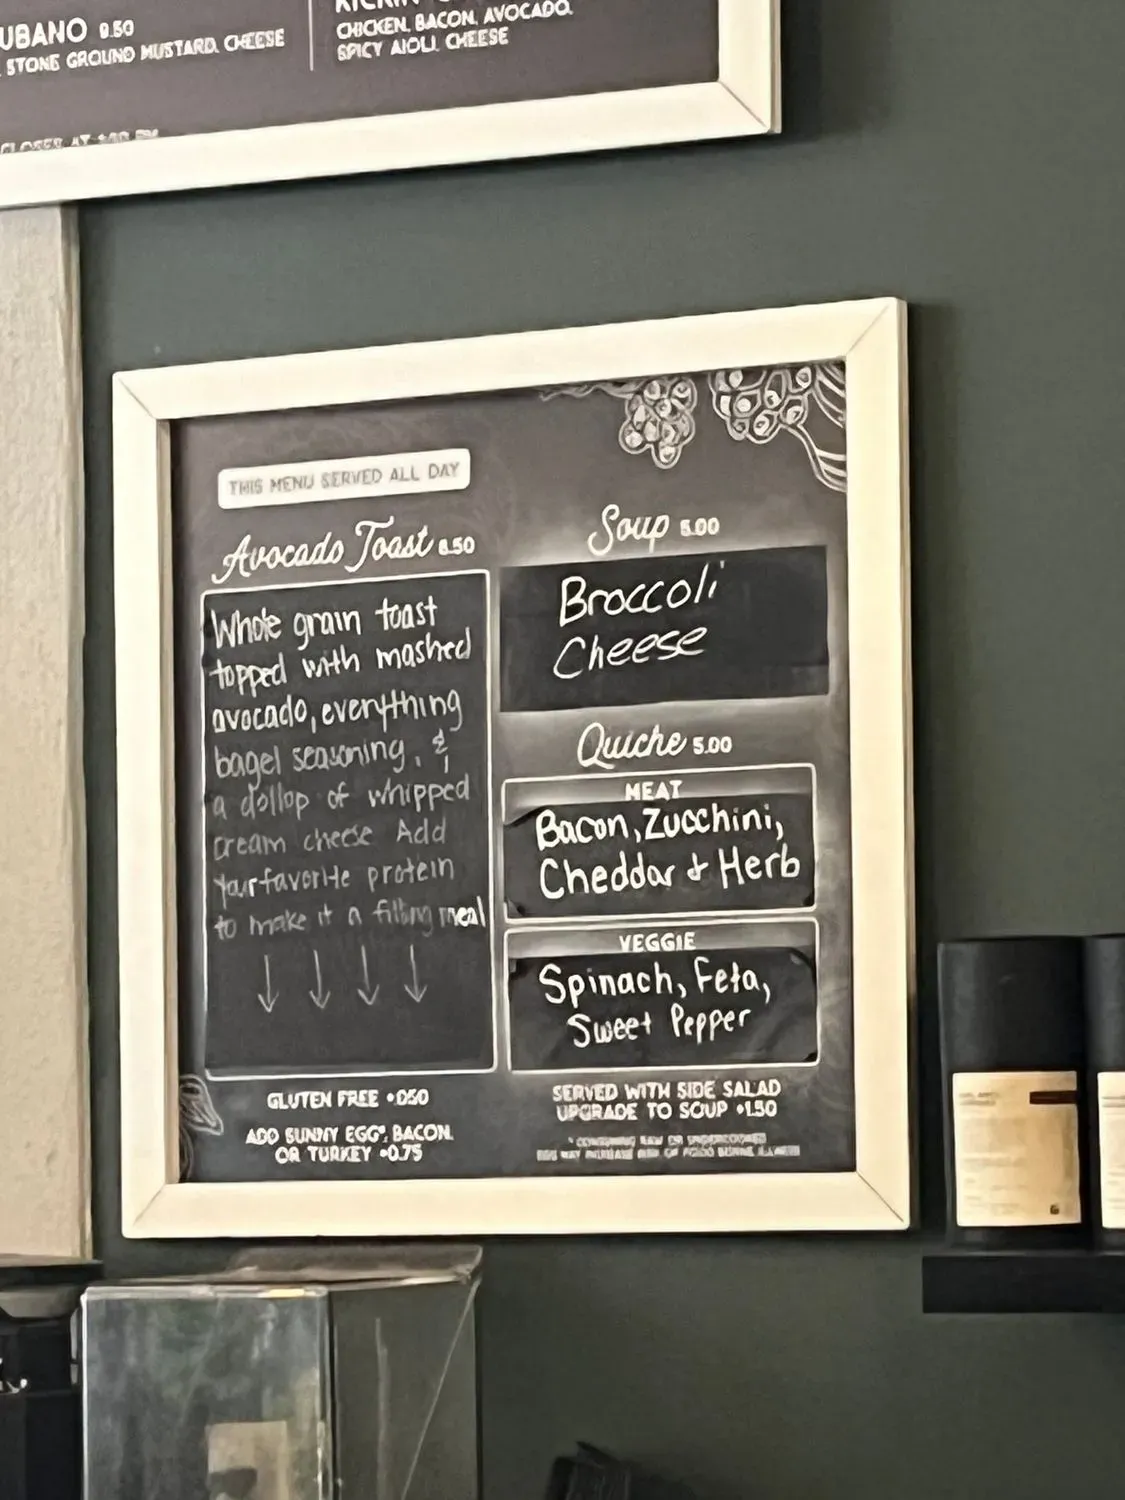 UBANO 9.50
STONE GROUND MUSTARD, CHEESE
CHICKEN, BACON, AVOCADO,
SPICY AIOLI, CHEESE
THIS MENU SERVED ALL DAY
Avocado Toast 6.50
Whole grain toast
topped with mashed
avocado, everything
bagel seasoning, &
a dollop of whipped
cream cheese Add
your favorite protein
to make it a filling meal
GLUTEN FREE +0.50
ADD SUNNY EGG*, BACON,
OR TURKEY +0.75
Soup 5.00
Broccoli
Cheese
Quiche 5.00
MEAT
Bacon, Zucchini,
Cheddar & Herb
VEGGIE
Spinach, Feta,
Sweet Pepper
SERVED WITH SIDE SALAD
UPGRADE TO SOUP +1.50
* CONSUMING RAW OR UNDERCOOKED
EGG MAY INCREASE RISK OF FOOD BORNE ILLNESS